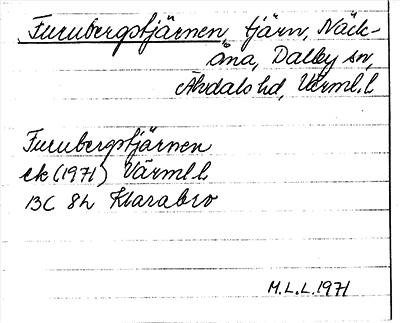 Furubergstjärnen, tjärn, Näck-
åna, Dalby sn,
Älvdals hd, Värml. l
Furubergstjärnen
ek (1971) Värml. l.
13C 8h Klarabro
M.L.L. 1971